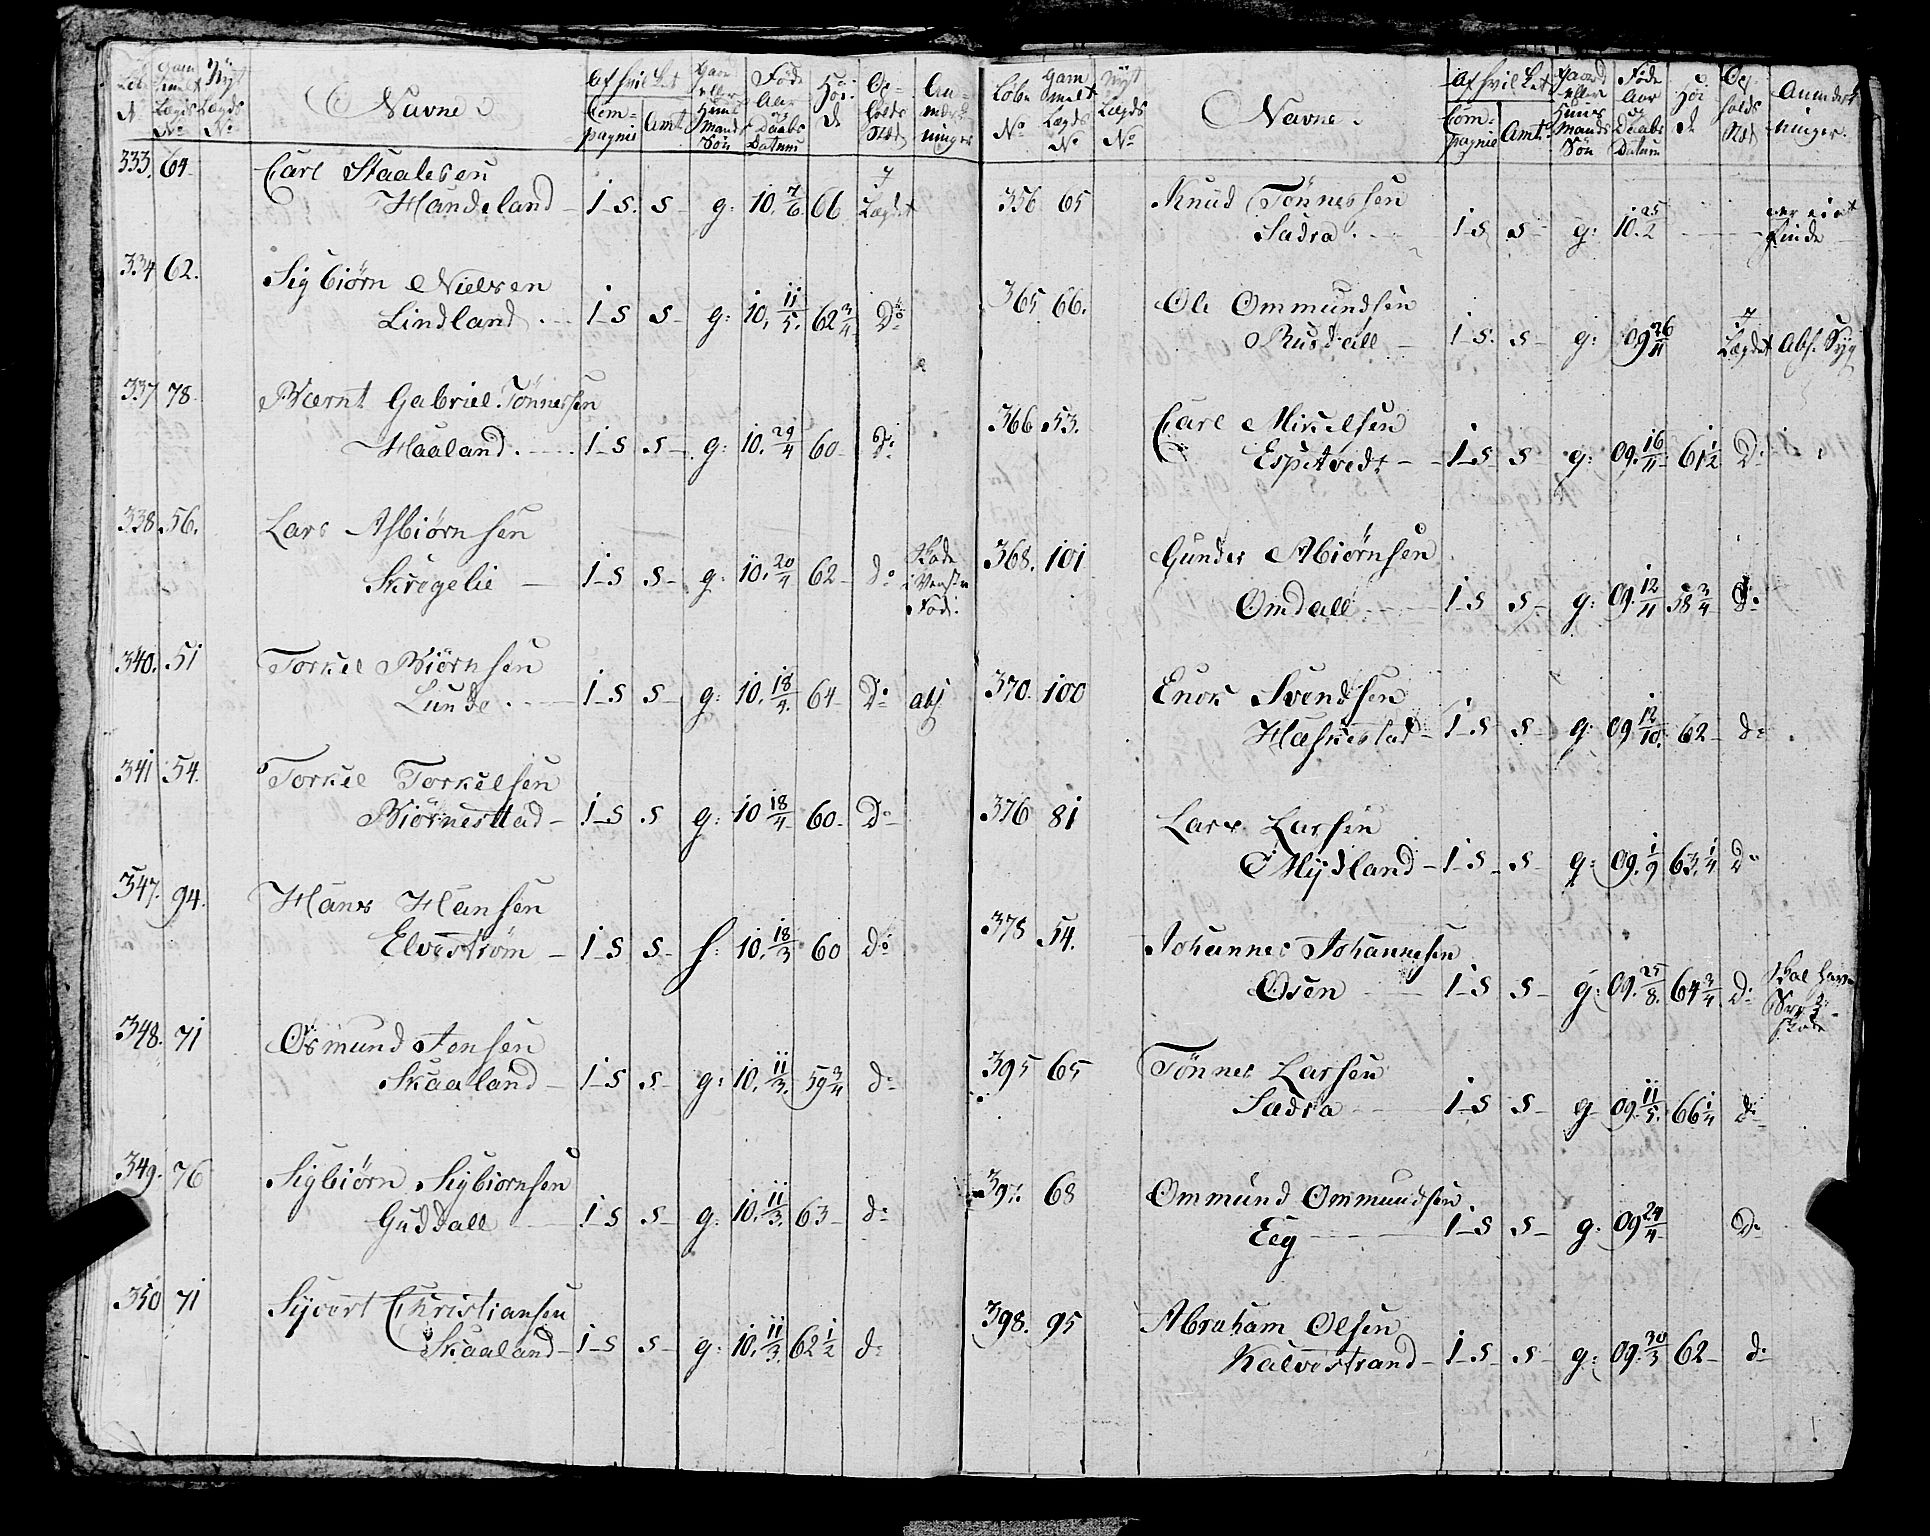 Løbe Gam Nÿt
N° melt Lægds
Lægds N°
N°
Navne
Af hvilket
Com- Amt
pagnie
Gaard
eller
Huus
Mands
Søn
Føde
Aar
og
Daabs
Datum
Høi
de
Op-
holds
Sted
An-
mærk
ninger
333. 64. Carl Staalesen
Handeland 1-S. S g: 10. 7/6 66 i Lægdet
334 62. Sigbiørn Nielsen
Lindland 1-S S g: 10. 11/5. 62 3/4 D°
337 78. Bernt Gabriel Tønnesen
Haaland 1-S S g: 10. 29/4 60 D°
338. 56. Lars Asbiørnsen
Skrøgelie 1-S S g: 10. 20/4 62 d° Skade
i Venstre
Fod.
340. 51 Torkel Biørnsen
Lunde 1-S S g: 10. 18/4. 64 D° abs.
341 54. Torkel Torkelsen
Biørnestad 1-S S g: 10 18/4 60 D°
347. 94. Hans Hansen
Elvestrøm 1-S S h: 10. 18/3 60 d°
348. 71 Osmund Jensen
Skaaland 1-S S g: 10. 11/3. 59 3/4 d°
349. 76 Sigbiørn Sigbiørnsen
Guddall 1-S S g: 10. 11/3. 63 d°
350 71 Syvert Christiansen
Skaaland 1-S S g: 10. 11/3. 62 1/2 d°
Løbe Gam Nÿt
N° melt Lægds
Lægds N°
N°
Navne
Af hvilket
Com- Amt
pagnie
Gaard
eller
Huus
Mands
Søn
Føde
Aar
og
Daabs
Datum
Høi
de
Op
holds
Sted
Anmærk
ninger.
356 65 Knud Tønnessen
Sadra 1-S S g: 10. 25/2 er ei at
finde
365 66. Ole Ommundsen
Rusdall 1-S. S g: 09 26/11 i Lægdet abs. Syg
366 53. Carl Mikelsen
Espetvedt 1-S S g: 09. 16/11 61 1/2 D°
368. 101 Gunder Abiørnsen
Omdall 1-S S g: 09. 12/11 58 3/4 d°
370. 100 Enok Svendsen
Hæskestad 1-S S g: 09 12/10. 62 d°
376 81 Lars Larsen
Mÿdland 1-S S g: 09. 1/9 63 1/4 d°
378 54. Johannes Johannesen
Osen 1-S S g: 09. 25/8. 64 3/4 d° skal have
skade
395 65 Tønnes Larsen
Sadra 1-S S g 09. 11/5. 66 1/4 d°
397. 68 Ommund Ommundsen
Eeg 1-S S g: 09 24/4 D°
398. 95 Abraham Olsen
Kalvestrand 1-S S g: 09. 30/3 62 d°